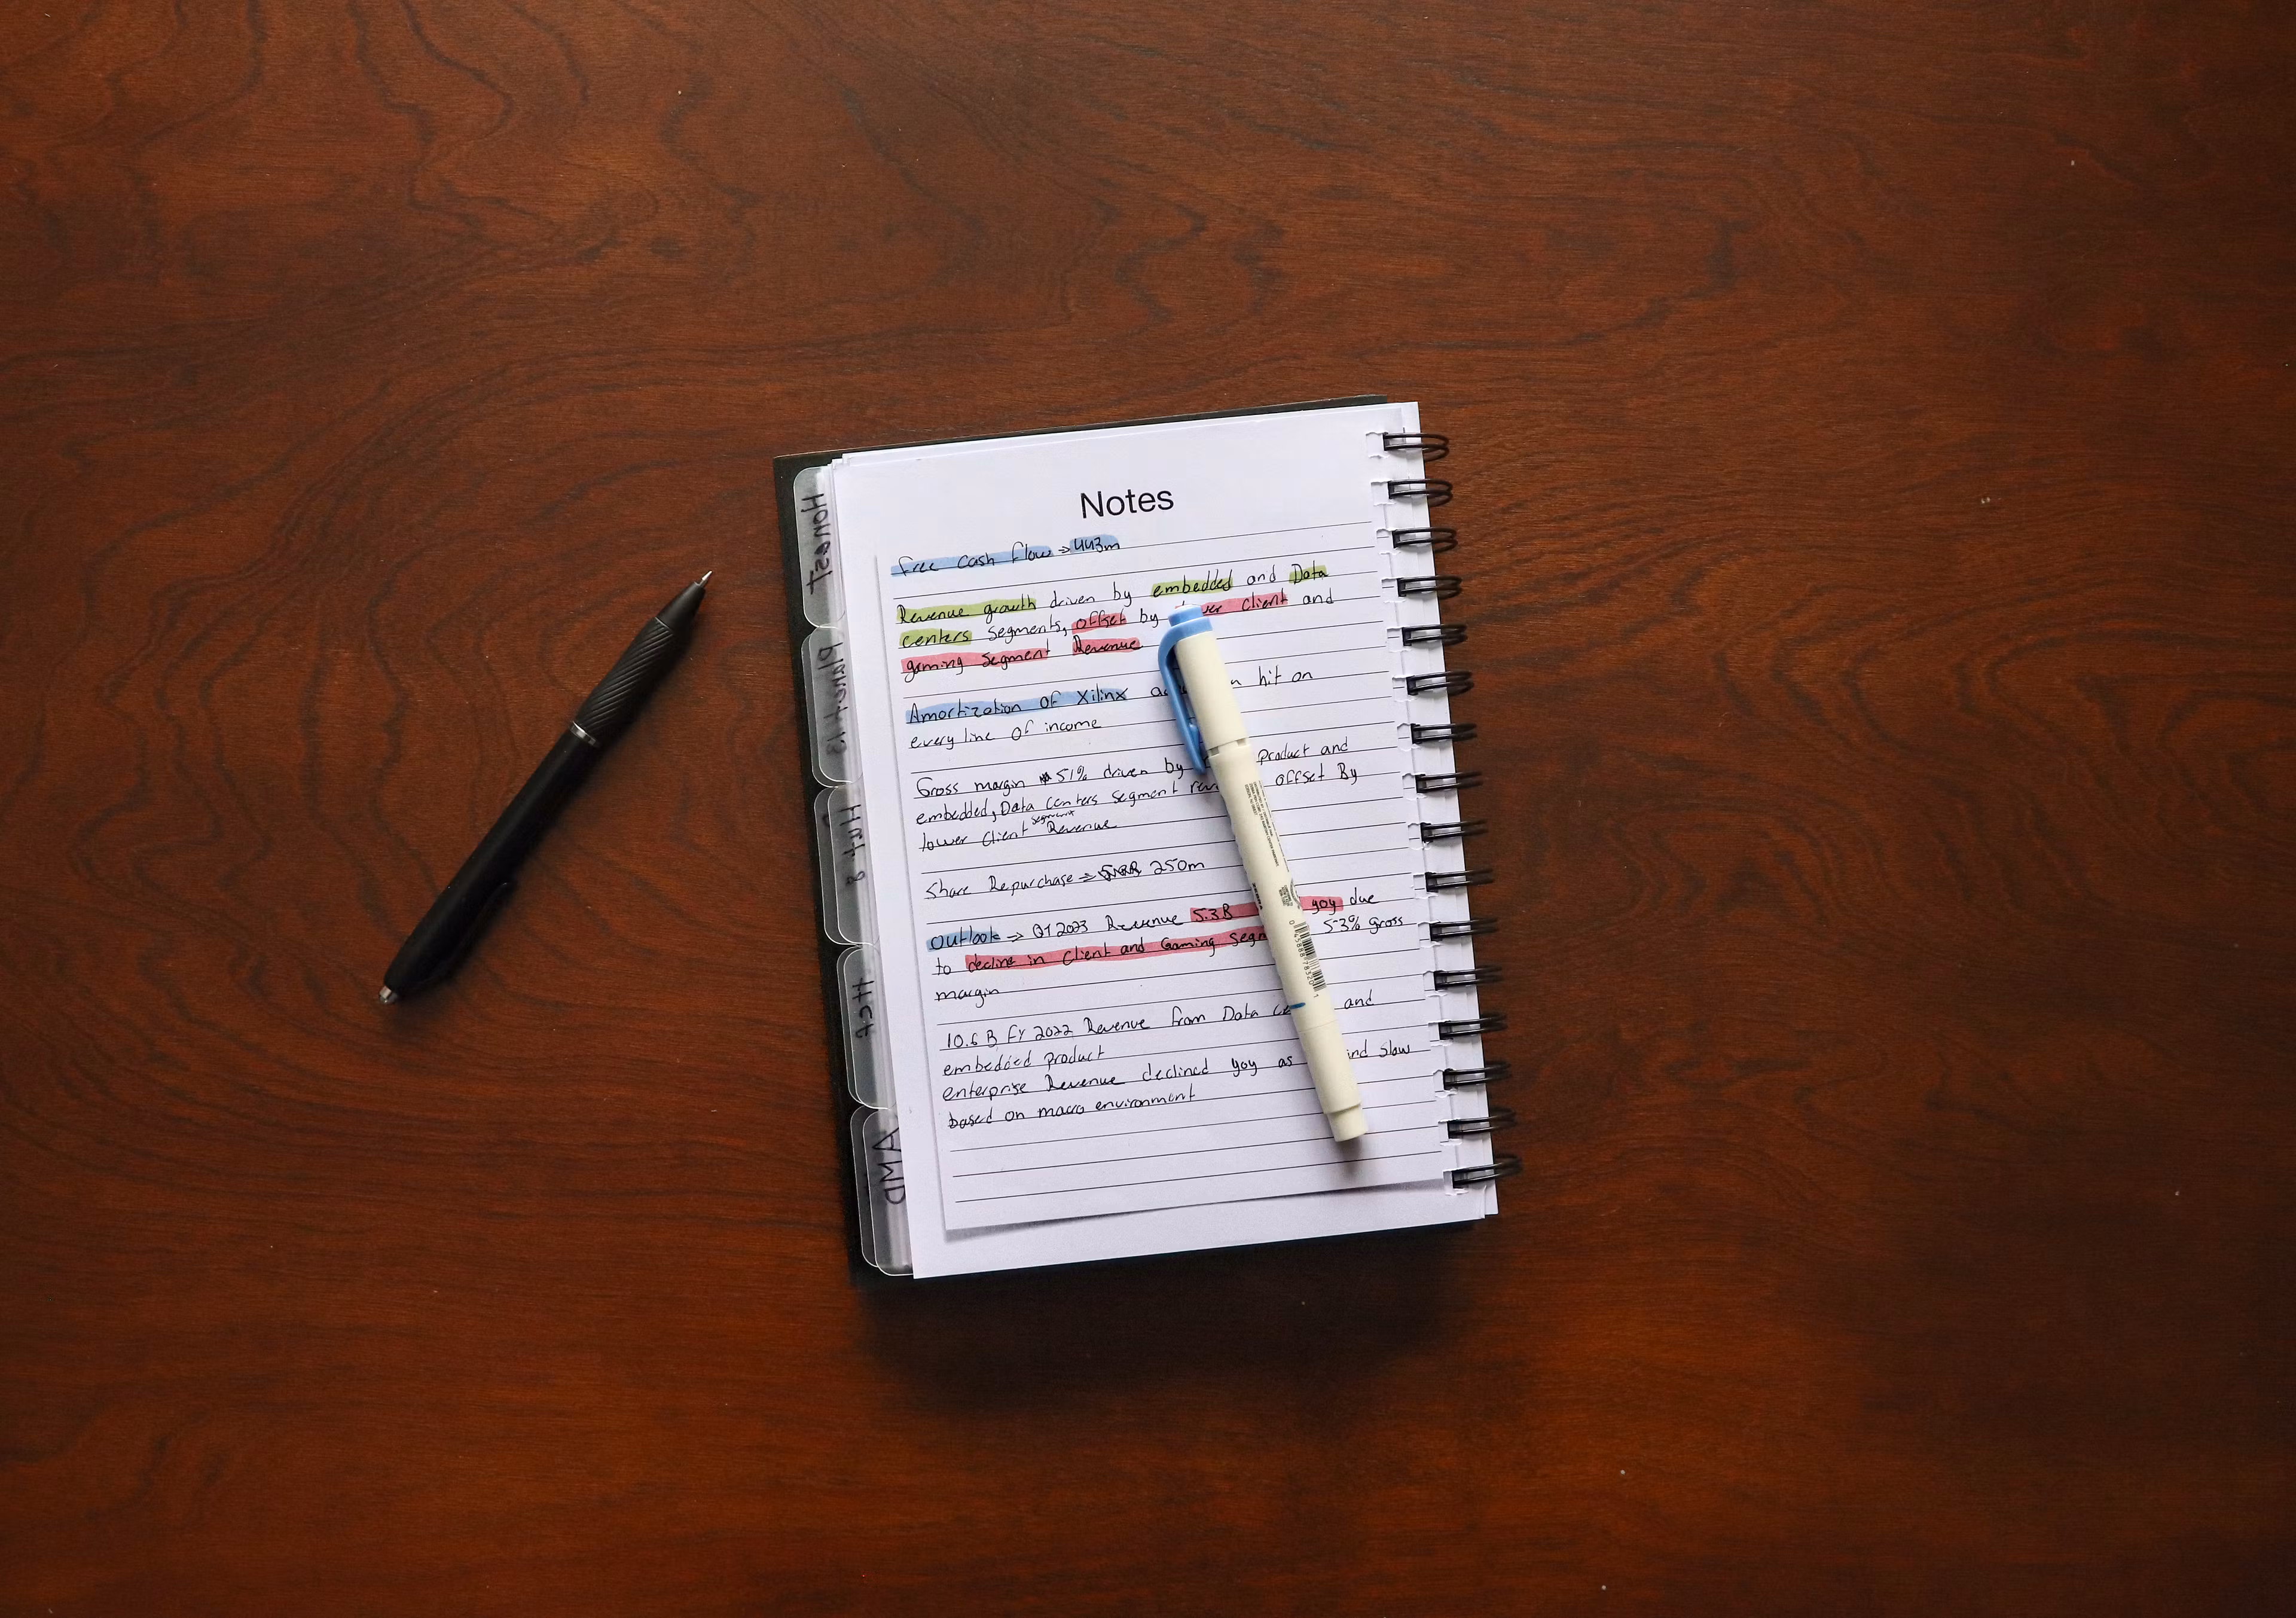 Notes
free cash flow → 443m
Revenue growth driven by embedded and Data
centers segments, offset by client and
gaming segment Revenue
Amortization of Xilinx hit on
every line of income
Gross margin 51% driven by product and
embedded, Data centers segment offset By
lower Client segment Revenue
Share Repurchase ⇒ 250m
Outlook → Q1 2023 Revenue 5.3B yoy due
to decline in Client and Gaming 53% gross
margin
10.6 B FY 2022 Revenue from Data and
embedded product
enterprise Revenue declined yoy as slow
based on macro environment
Honest
Planet 13
Hut 8
AMD